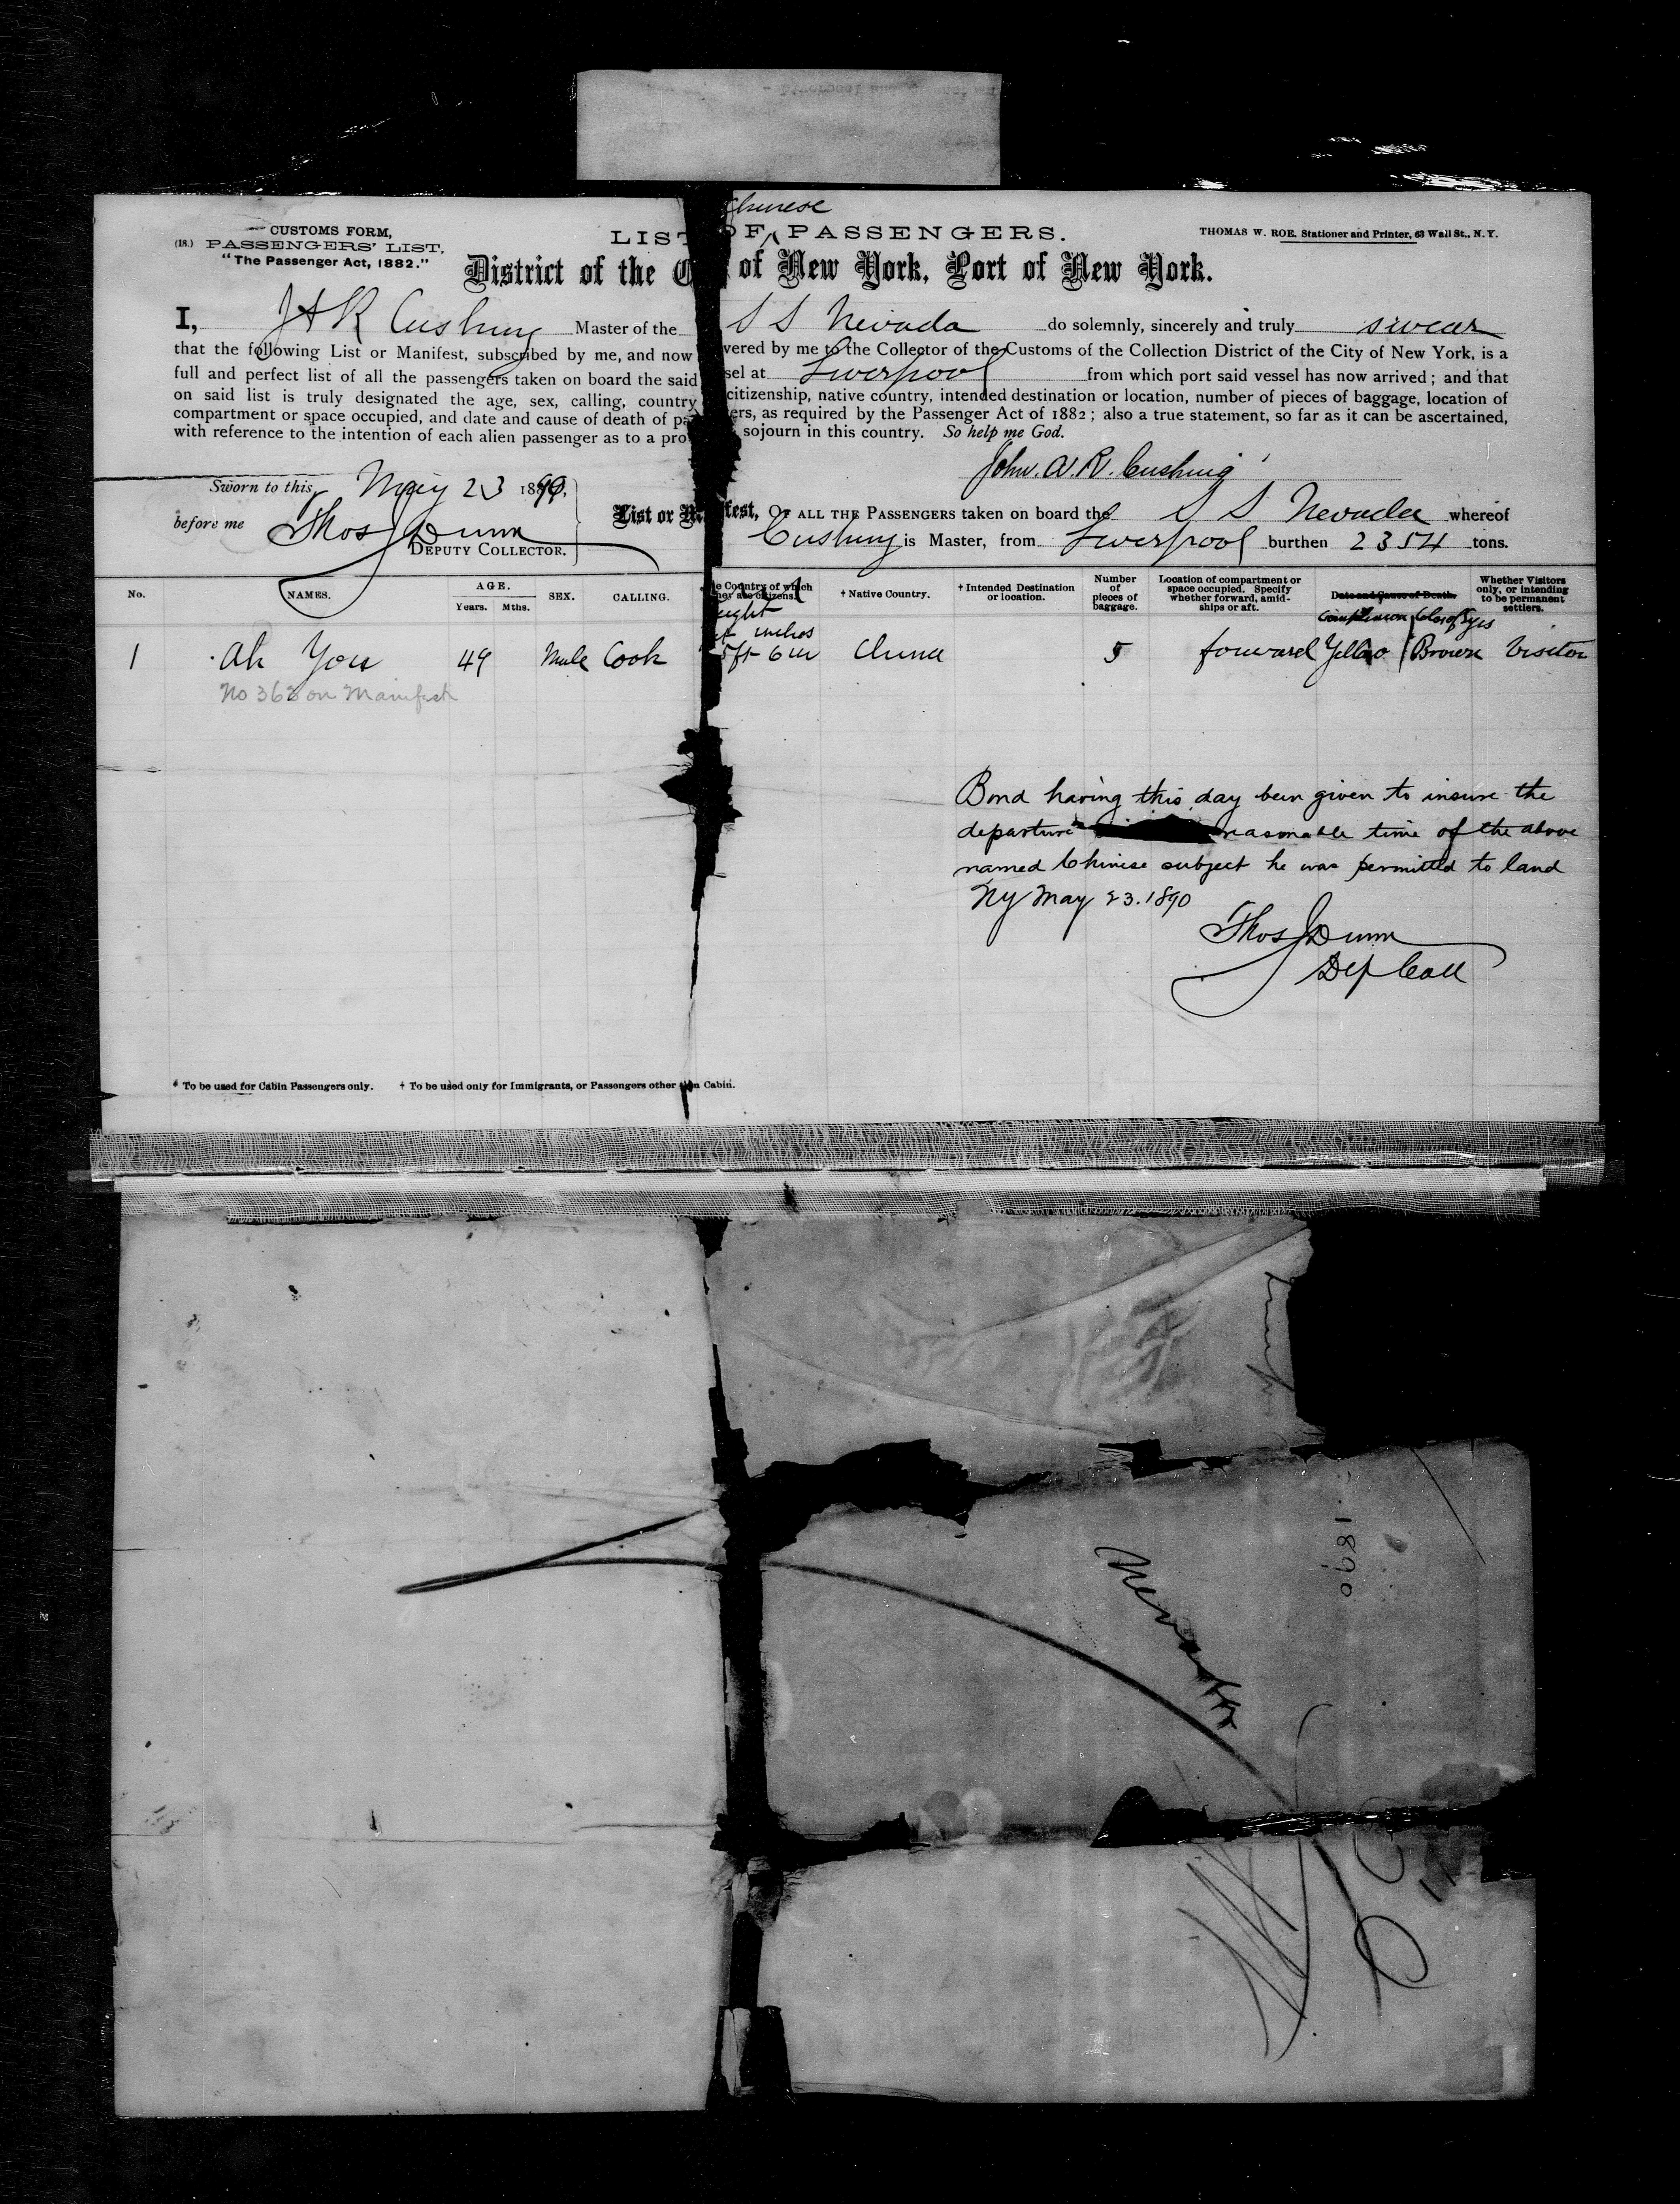 Chinese
CUSTOMS FORM,
(18.) PASSENGERS' LIST,
"The Passenger Act, 1882."
LIST OF PASSENGERS.
THOMAS W. ROE, Stationer and Printer, 63 Wall St., N.Y.
District of the C of New York, Port of New York.
I, J A R Cushing Master of the S S Nevada do solemnly, sincerely and truly swear
that the following List or Manifest, subscribed by me, and now vered by me to the Collector of the Customs of the Collection District of the City of New York, is a
full and perfect list of all the passengers taken on board the said sel at Liverpool from which port said vessel has now arrived; and that
on said list is truly designated the age, sex, calling, country citizenship, native country, intended destination or location, number of pieces of baggage, location of
compartment or space occupied, and date and cause of death of pa ers, as required by the Passenger Act of 1882; also a true statement, so far as it can be ascertained,
with reference to the intention of each alien passenger as to a pro sojourn in this country. So help me God.
John. A. R. Cushing
Sworn to this, May 23 1890,
before me Thos J Dunn
DEPUTY COLLECTOR.
List or M fest, OF ALL THE PASSENGERS taken on board the S S Nevada whereof
Cushing is Master, from Liverpool burthen 2354 tons.
No. NAMES. AGE. Years. Mths. SEX. CALLING. e Country of which they are citizens. † Native Country. † Intended Destination or location. Number of pieces of baggage. Location of compartment or space occupied. Specify whether forward, amidships or aft. Date and Cause of Death. Whether Visitors only, or intending to be permanent settlers.
eight
ft inches
Complexion Color of Eyes
1 Ah You 49 Male Cook 5ft 6in China 5 forward Yellow Brown Visitor
No 363 on Manifest
Bond having this day been given to insure the
departure reasonable time of the above
named Chinese subject he was permitted to land
NY May 23. 1890
Thos J Dunn
Dep Coll
* To be used for Cabin Passengers only. † To be used only for Immigrants, or Passengers other than Cabin.
1890
Nevada